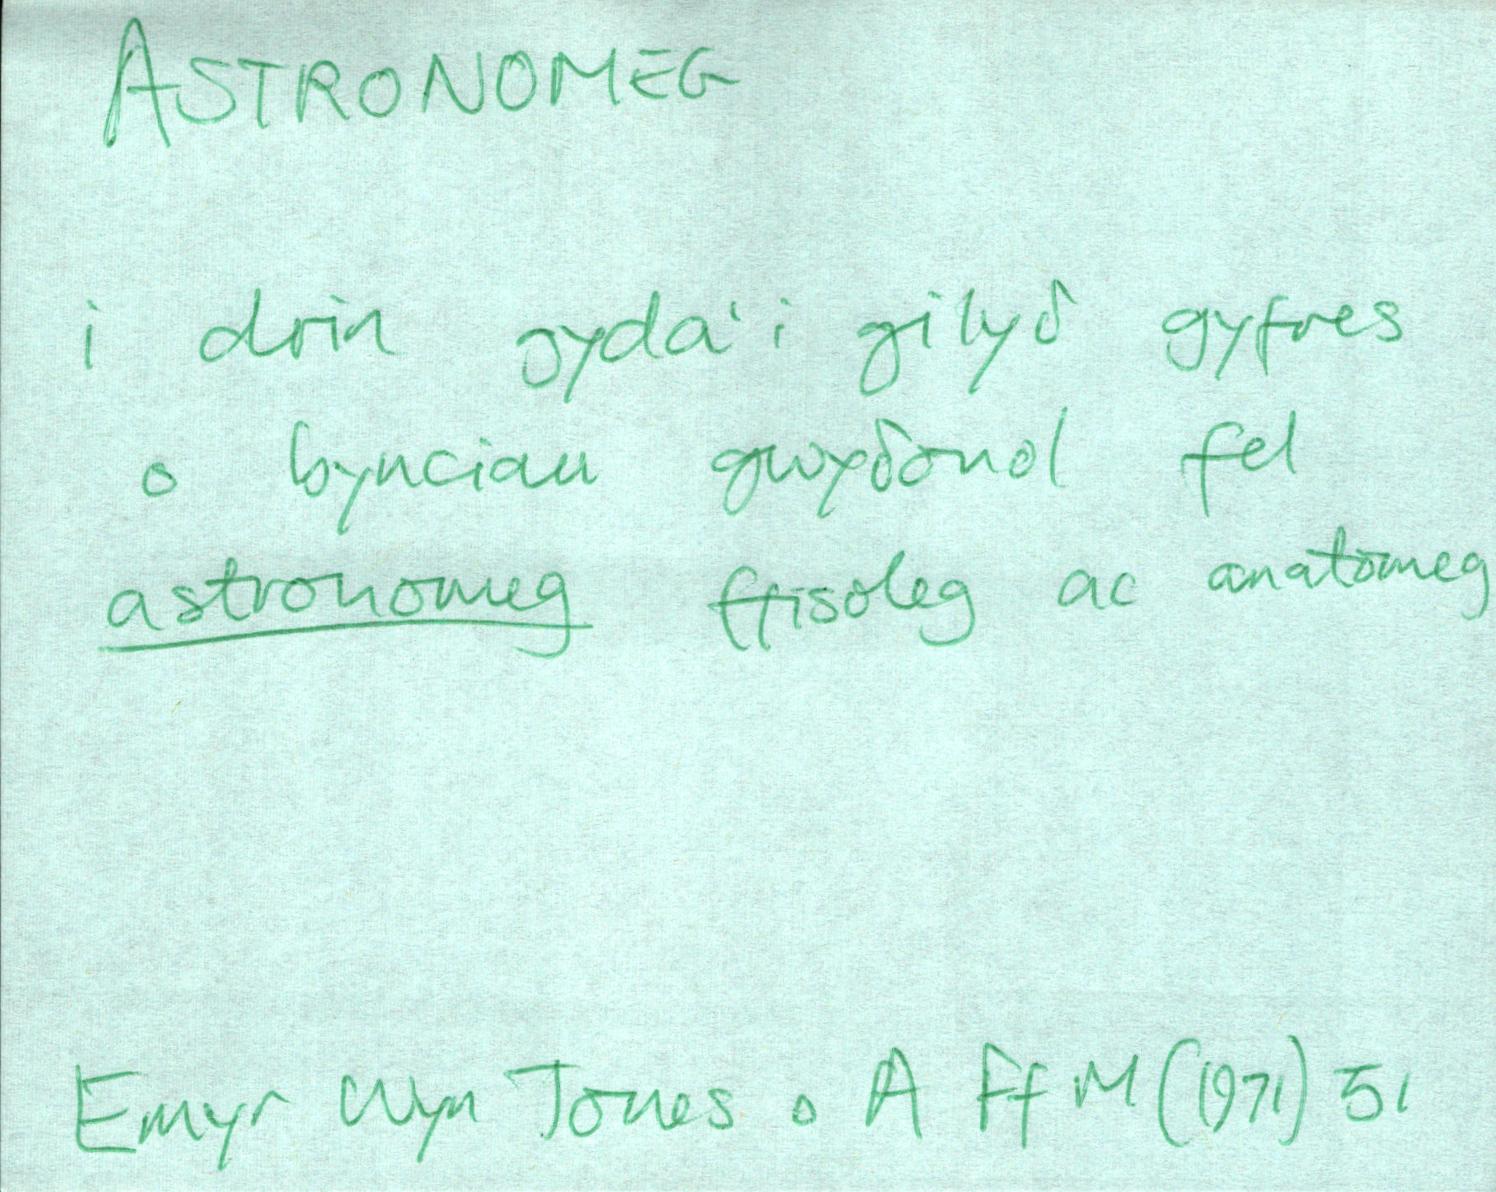 ASTRONOMEG
i drin gyda'i gilyδ gyfres
o bynciau gwyδonol fel
astronomeg ffisoleg ac anatomeg
Emyr Wyn Jones o A Ff M (1971) 51